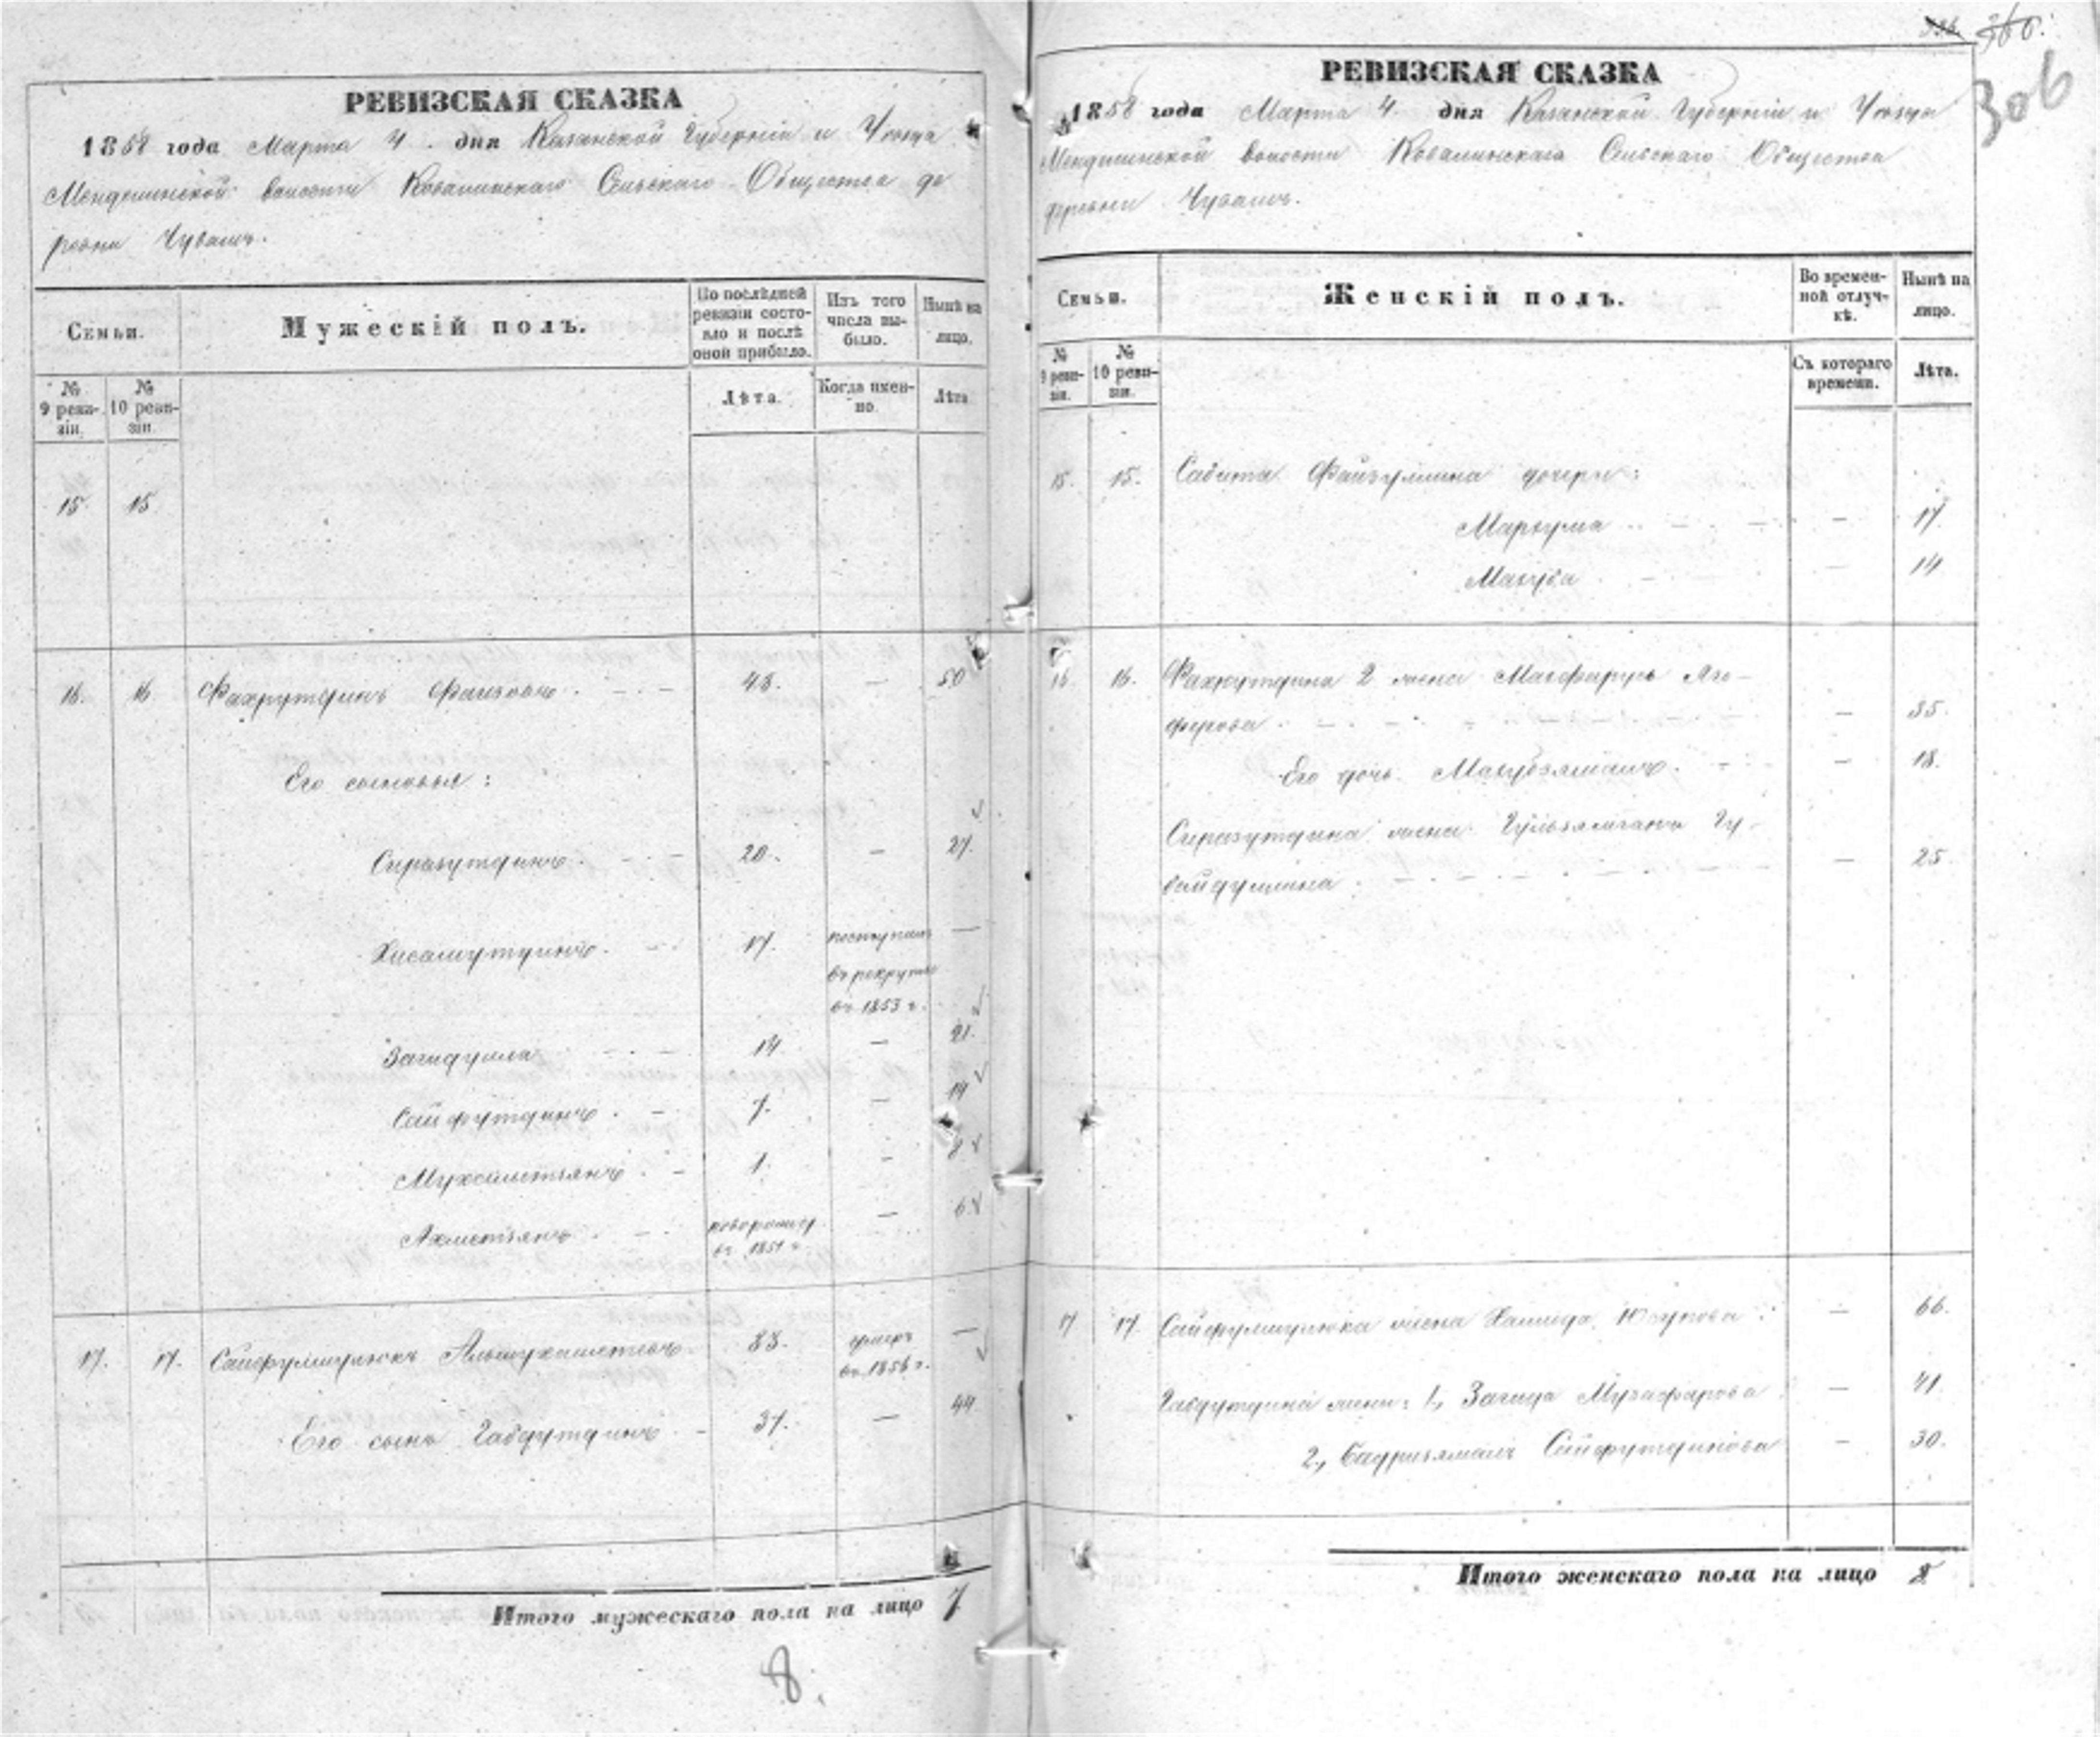 336. 366.
306
РЕВИЗСКАЯ СКАЗКА
1858 года Марта 4. дня Казанской Губерніи и Уѣзда
Мендюшинской волости Ковалинскаго Сельскаго Общества де
ревни Чувашъ.
Семьи.
Мужескій полъ.
По послѣдней
ревизіи состо-
яло и послѣ
оной прибыло.
Изъ того
числа вы-
было.
Нынѣ на
лицо.
№
9 реви-
зіи.
№
10 реви-
зіи.
Лѣта.
Когда имен-
но.
Лѣта
15. 15
16. 16 Фахрутдинъ Фаизовъ. 43. — 50
Его сыновья:
Сиразутдинъ. 20. — 27.
Хисамутдинъ. 17. поступилъ —
въ рекруты
въ 1853 г.
Загидулла 14 — 21.
Сайфутдинъ. 7. — 14
Мухаметзянъ. 1. — 8
Ахметзянъ. новорожд. — 6
въ 1851 г.
17. 17. Сайфулмулюкъ Альмухаметевъ 83. умеръ —
въ 1856 г.
Его сынъ Габдутдинъ. 37. — 44
Итого мужескаго пола на лицо 7
8.
РЕВИЗСКАЯ СКАЗКА
1858 года Марта 4. дня Казанской Губерніи и Уѣзда
Мендюшинской волости Ковалинскаго Сельскаго Общества
деревни Чувашъ.
Семьи.
Женскій полъ.
Во времен-
ной отлуч-
кѣ.
Нынѣ на
лицо.
№
9 реви-
зіи.
№
10 реви-
зіи.
Съ котораго
времени.
Лѣта.
15. 15. Сабита Файзуллина дочери:
Маркума — 17
Макуба — 14
16. 16. Фахрутдина 2 жена Магфируръ Яго-
ферова — 35.
Его дочь Макубзямалъ. — 18.
Сиразутдина жена Гульзямгана Гу-
байдуллина — 25
17 17. Сайфулмулюка жена Хамида Юсупова — 66.
Габдутдина жены: 1, Загида Музафарова — 41
2, Бадризямалъ Сайфутдинова — 30.
Итого женскаго пола на лицо 8